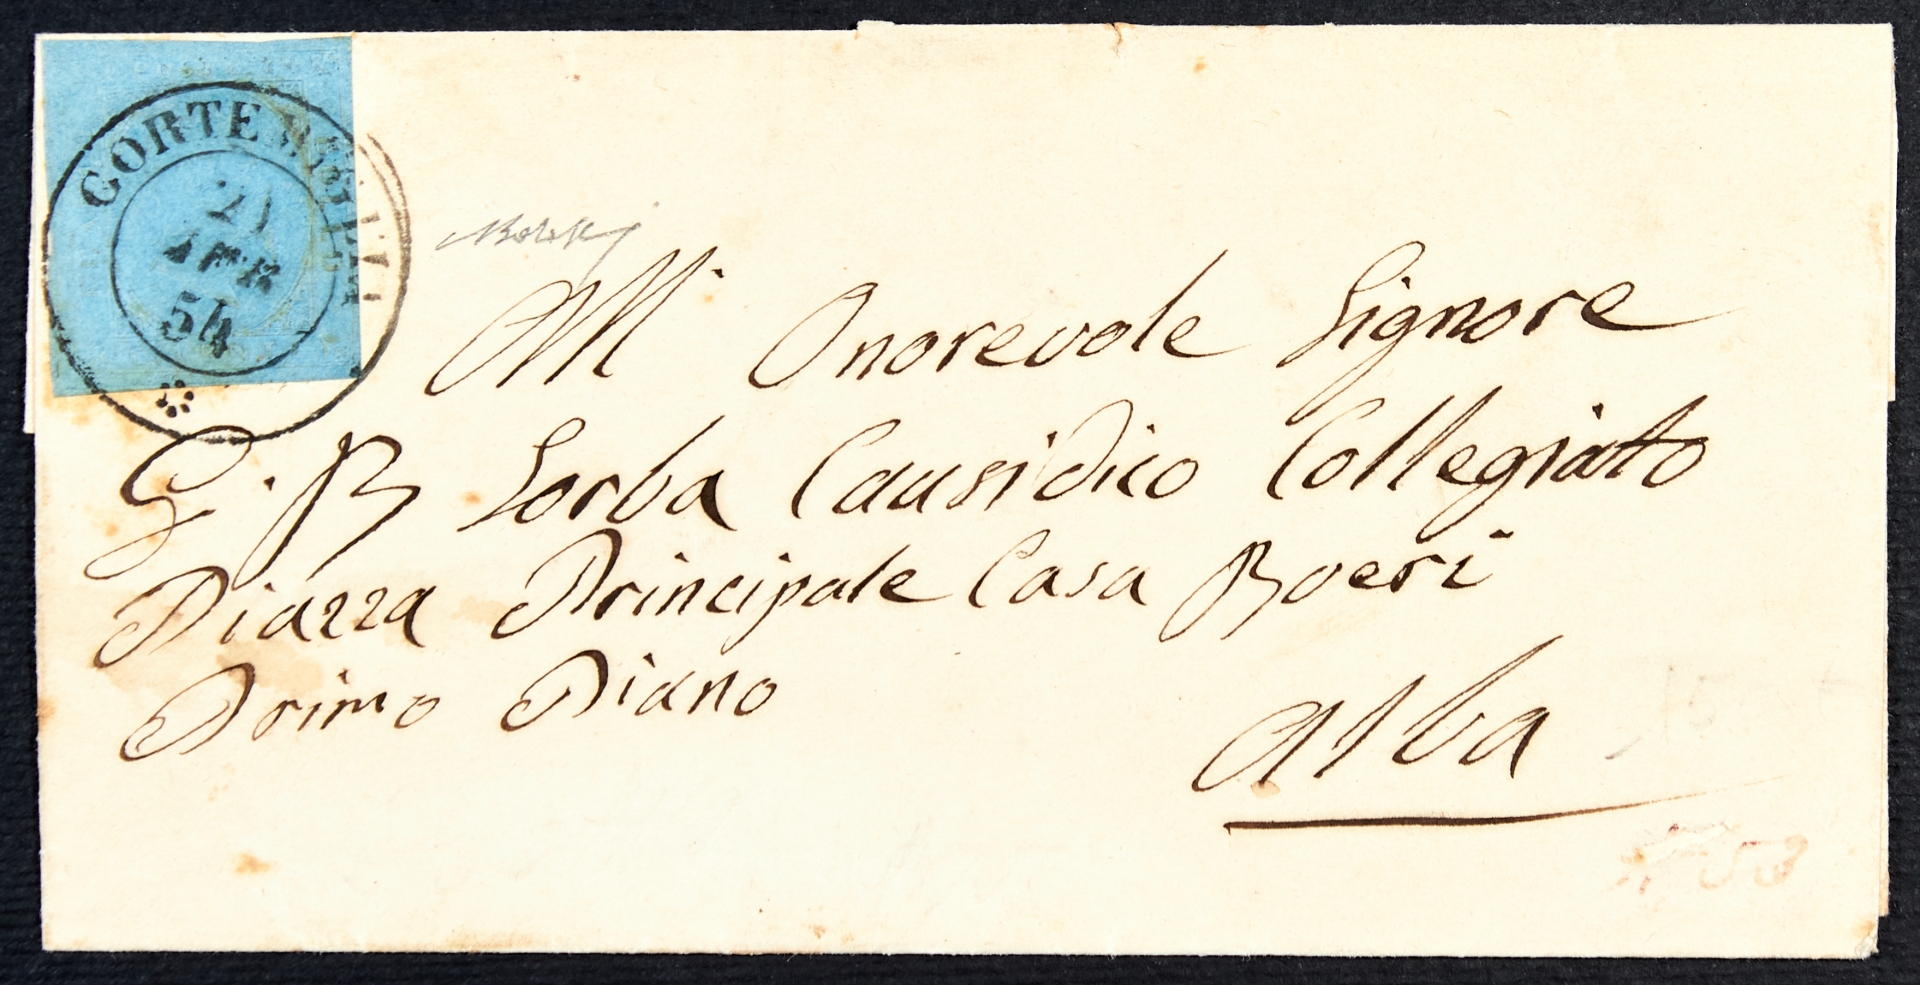 CORTEMIGLIA
21
APR
54
All' Onorevole Signore
G. B Sorba Causidico Collegiato
Piazza Principale Casa Boeri
Primo Piano
Alba